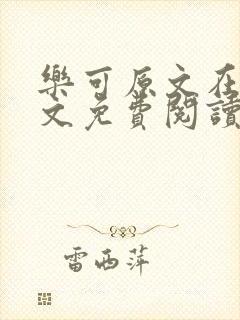 樂可原文在
文免費閱讀
雷西萍